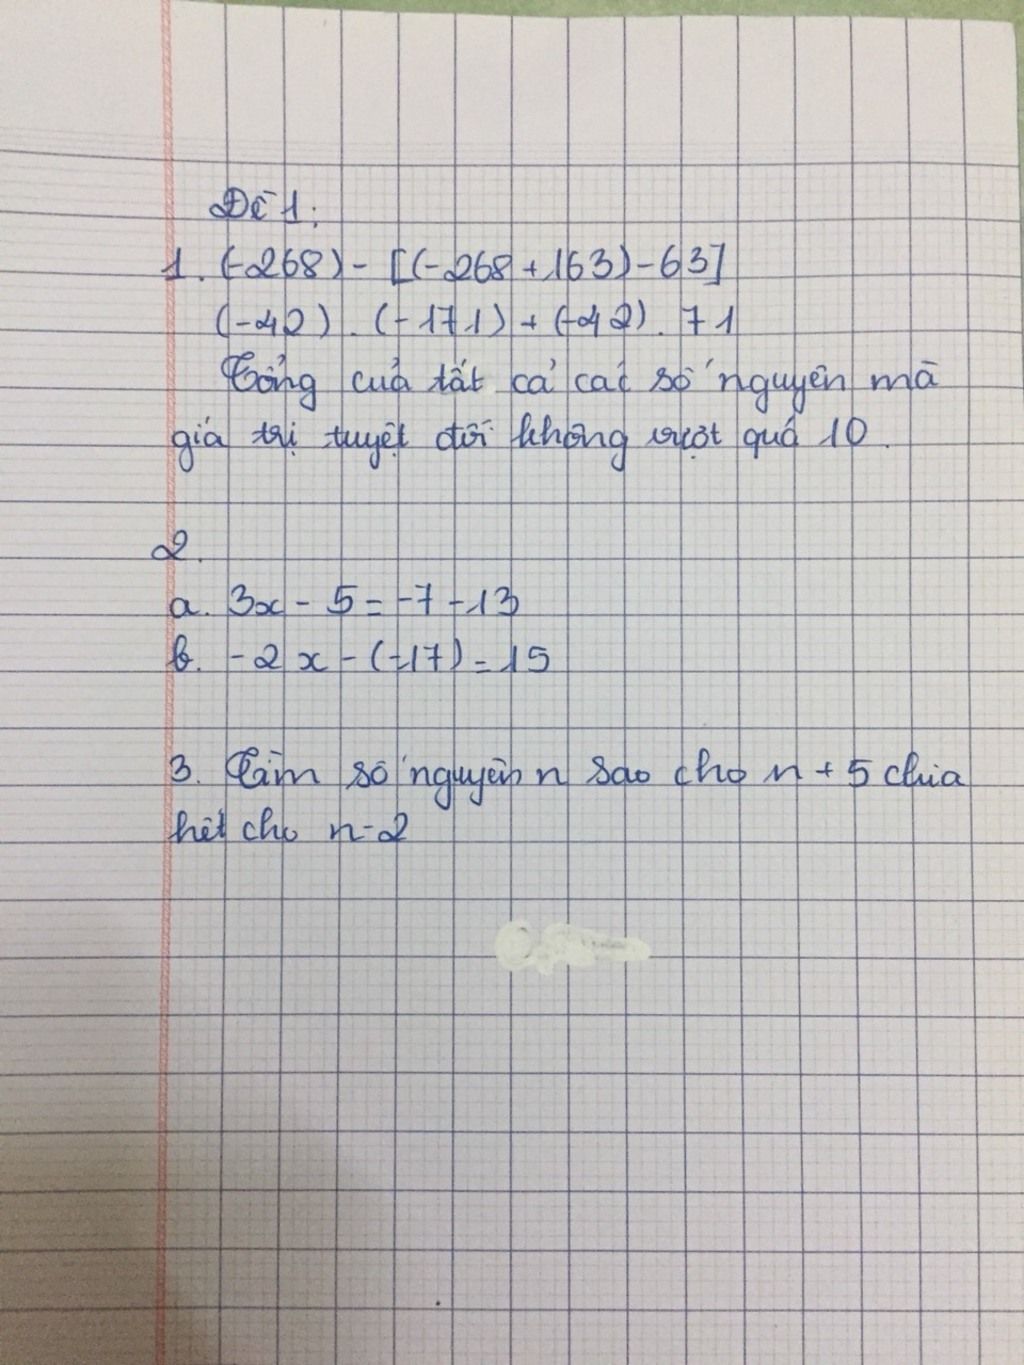 Đề 1:
1. (-268) - [(-268 + 163) - 63]
(-42) . (-171) + (-42) . 71
Tổng của tất cả các số nguyên mà
giá trị tuyệt đối không vượt quá 10.
2.
a. 3x - 5 = -7 - 13
b. -2x - (-17) = 15
3. Tìm số nguyên n sao cho n + 5 chia
hết cho n-2